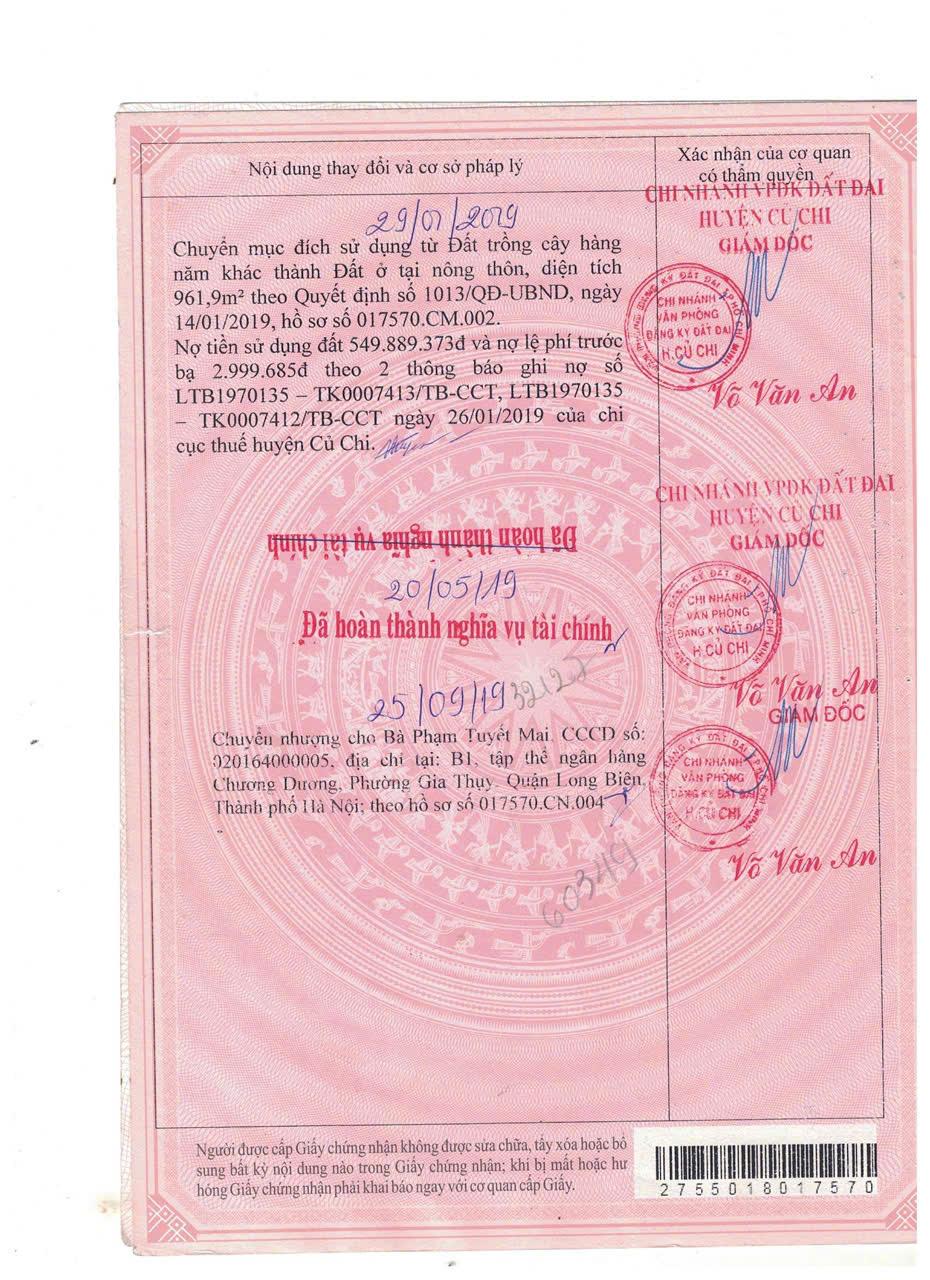 Nội dung thay đổi và cơ sở pháp lý
Xác nhận của cơ quan
có thẩm quyền
29/01/2019
Chuyển mục đích sử dụng từ Đất trồng cây hàng
năm khác thành Đất ở tại nông thôn, diện tích
961,9m² theo Quyết định số 1013/QĐ-UBND, ngày
14/01/2019, hồ sơ số 017570.CM.002.
Nợ tiền sử dụng đất 549.889.373đ và nợ lệ phí trước
bạ 2.999.685đ theo 2 thông báo ghi nợ số
LTB1970135 – TK0007413/TB-CCT, LTB1970135
– TK0007412/TB-CCT ngày 26/01/2019 của chi
cục thuế huyện Củ Chi.
CHI NHÁNH VPĐK ĐẤT ĐAI
HUYỆN CỦ CHI
GIÁM ĐỐC
VĂN PHÒNG ĐĂNG KÝ ĐẤT ĐAI TP HỒ CHÍ MINH
CHI NHÁNH
VĂN PHÒNG
ĐĂNG KÝ ĐẤT ĐAI
H.CỦ CHI
Võ Văn An
Đã hoàn thành nghĩa vụ tài chính
20/05/19
Đã hoàn thành nghĩa vụ tài chính
CHI NHÁNH VPĐK ĐẤT ĐAI
HUYỆN CỦ CHI
GIÁM ĐỐC
VĂN PHÒNG ĐĂNG KÝ ĐẤT ĐAI TP HỒ CHÍ MINH
CHI NHÁNH
VĂN PHÒNG
ĐĂNG KÝ ĐẤT ĐAI
H.CỦ CHI
Võ Văn An
25/09/19
Chuyển nhượng cho Bà Phạm Tuyết Mai, CCCD số:
020164000005, địa chỉ tại: B1, tập thể ngân hàng
Chương Dương, Phường Gia Thụy, Quận Long Biên,
Thành phố Hà Nội; theo hồ sơ số 017570.CN.004
GIÁM ĐỐC
VĂN PHÒNG ĐĂNG KÝ ĐẤT ĐAI TP HỒ CHÍ MINH
CHI NHÁNH
VĂN PHÒNG
ĐĂNG KÝ ĐẤT ĐAI
H.CỦ CHI
Võ Văn An
60349
Người được cấp Giấy chứng nhận không được sửa chữa, tẩy xóa hoặc bổ
sung bất kỳ nội dung nào trong Giấy chứng nhận; khi bị mất hoặc hư
hỏng Giấy chứng nhận phải khai báo ngay với cơ quan cấp Giấy.
2755018017570